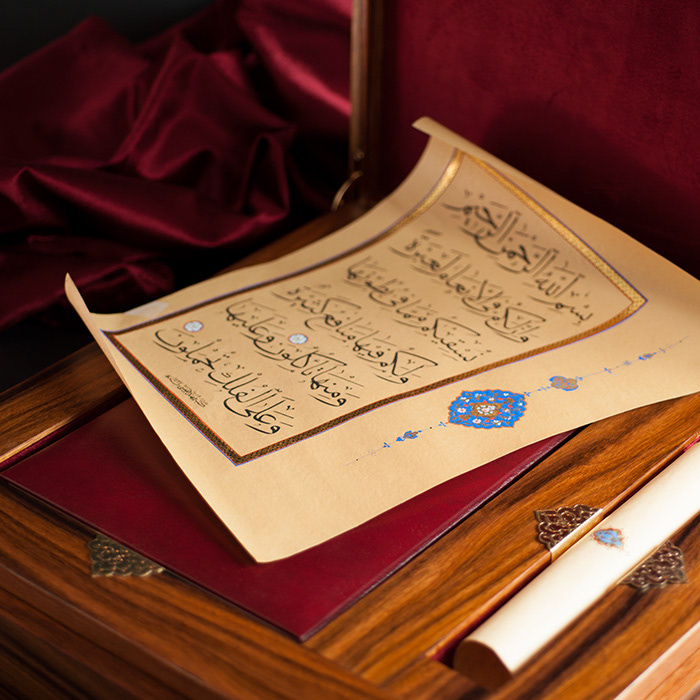 بسم الله الرحمن الرحيم
وإن لكم في الأنعام لعبرة
نسقيكم مما في بطونها
ولكم فيها منافع كثيرة
ومنها تأكلون وعليها
وعلى الفلك تحملون